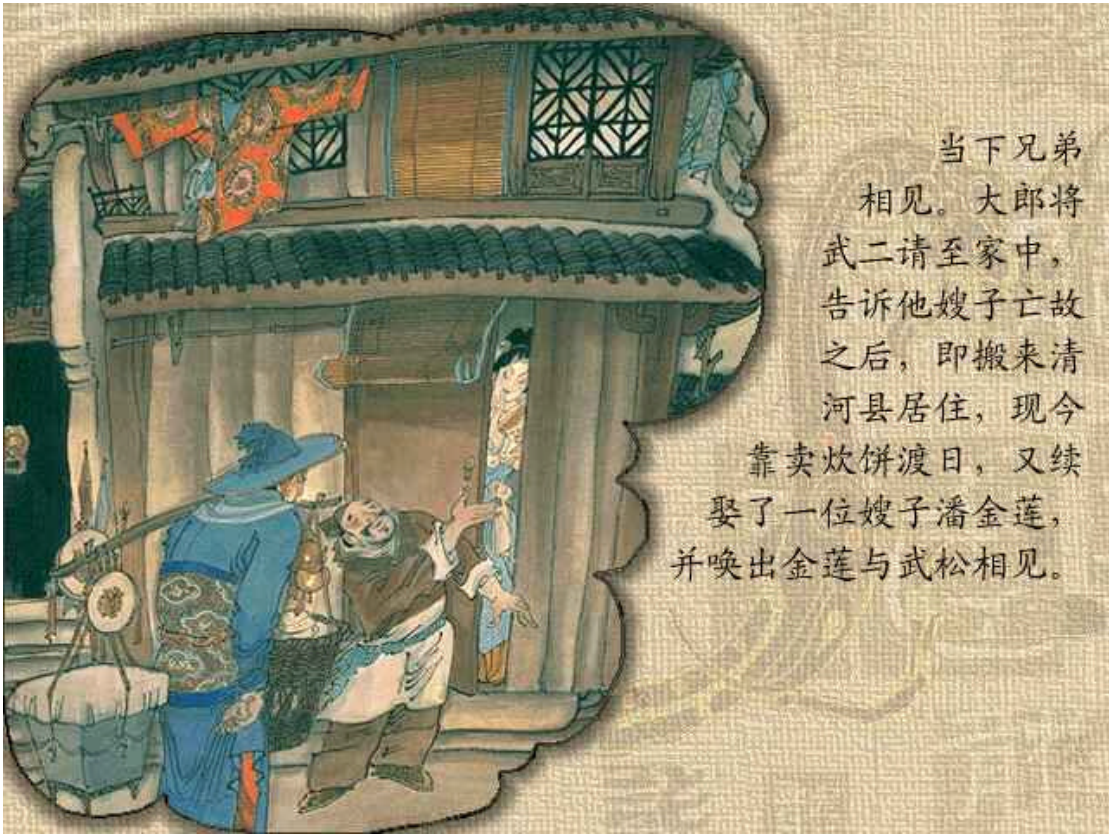 当下兄弟
相见。大郎将
武二请至家中，
告诉他嫂子亡故
之后，即搬来清
河县居住，现今
靠卖炊饼渡日，又续
娶了一位嫂子潘金莲，
并唤出金莲与武松相见。